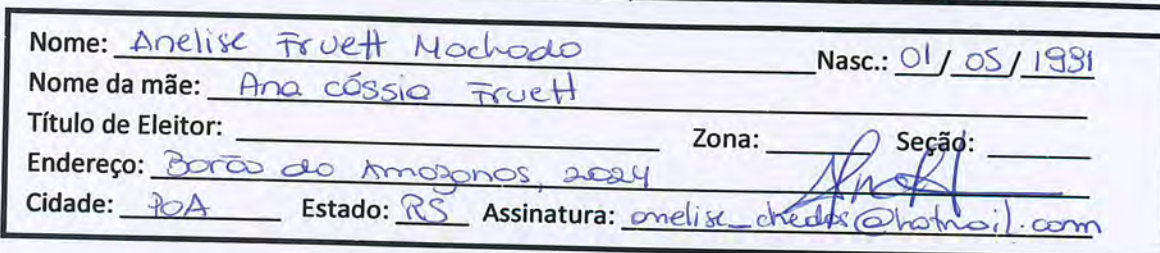 Nome: Anelise Fruett Machado Nasc.: 01/05/1991
Nome da mãe: Ana Cássia Fruett
Título de Eleitor: Zona: Seção:
Endereço: Barão do Amazonas, 2024
Cidade: POA Estado: RS Assinatura: @hotmail.com